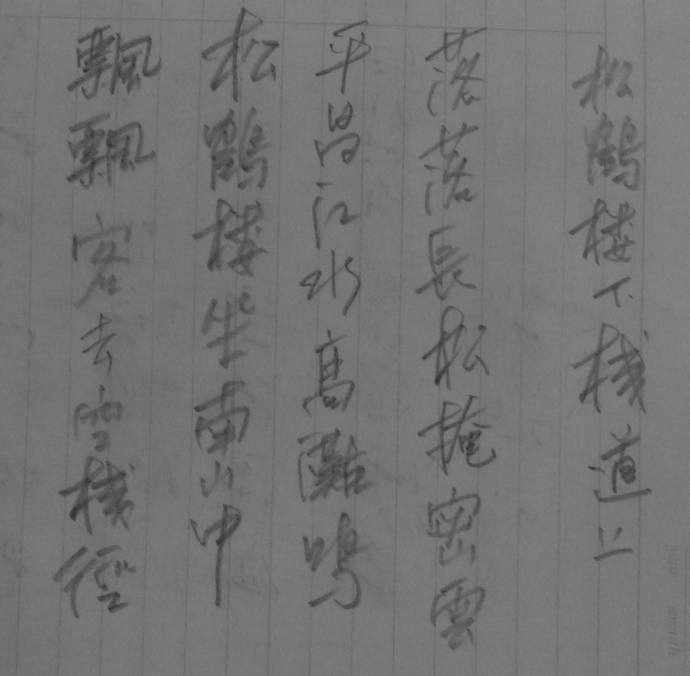 松鶴楼下栈道上
落落長松掩密雲
平昌江水高鳴
松鶴楼坐南山中
飄飄客去栈徑